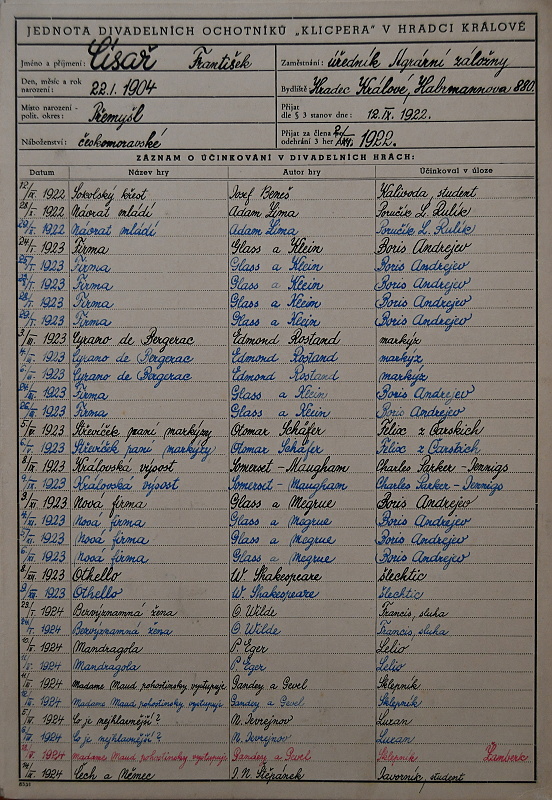 JEDNOTA DIVADELNÍCH OCHOTNÍKŮ „KLICPERA" V HRADCI KRÁLOVÉ
Jméno a přijmení: Císař František
Zaměstnání: úředník Agrární záložny
Den, měsíc a rok narození: 22.1.1904
Bydliště Hradec Králové, Habrmannova 880.
Místo narození - polit. okres: Přemyšl
Přijat dle § 3 stanov dne: 12. IX. 1922.
Náboženství: českomoravské
Přijat za člena odehrání 3 her 1922.
ZÁZNAM O ÚČINKOVÁNÍ V DIVADELNÍCH HRÁCH:
Datum Název hry Autor hry Účinkoval v úloze
1922 Sokolský křest Josef Beneš Kalivoda, student
1922 Návrat mládí Adam Lima Poručík L. Rulík
1922 Návrat mládí Adam Lima Poručík L. Rulík
1923 Firma Glass a Klein Boris Andrejev
1923 Firma Glass a Klein Boris Andrejev
1923 Firma Glass a Klein Boris Andrejev
1923 Firma Glass a Klein Boris Andrejev
1923 Firma Glass a Klein Boris Andrejev
1923 Cyrano de Bergerac Edmond Rostand markýz
1923 Cyrano de Bergerac Edmond Rostand markýz
1923 Cyrano de Bergerac Edmond Rostand markýz
1923 Firma Glass a Klein Boris Andrejev
1923 Firma Glass a Klein Boris Andrejev
1923 Střevíček paní markýzy Otomar Schäfer Félix z Čarskich
1923 Střevíček paní markýzy Otomar Schäfer Félix z Čarskich
1923 Královská výsost Somerset - Maugham Charles Parker - Jennigs
1923 Královská výsost Somerset - Maugham Charles Parker - Jennigs
1923 Nová firma Glass a Megrue Boris Andrejev
1923 Nová firma Glass a Megrue Boris Andrejev
1923 Nová firma Glass a Megrue Boris Andrejev
1923 Nová firma Glass a Megrue Boris Andrejev
1923 Othello W. Shakespeare šlechtic
1923 Othello W. Shakespeare šlechtic
1924 Bezvýznamná žena O. Wilde Francis, sluha
1924 Bezvýznamná žena O. Wilde Francis, sluha
1924 Mandragola P. Eger Lelio
1924 Mandragola P. Eger Lelio
1924 Madame Maud pohostinsky vystupuje Gandey a Gevel Sklepník
1924 Madame Maud pohostinsky vystupuje Gandey a Gevel Sklepník
1924 Co je nejhlavnější? N. Jevrejnov Luzan
1924 Co je nejhlavnější? N. Jevrejnov Luzan
1924 Madame Maud pohostinsky vystupuje Gandey a Gevel Sklepník Žamberk
1924 Čech a Němec J. N. Štěpánek Javorník, student